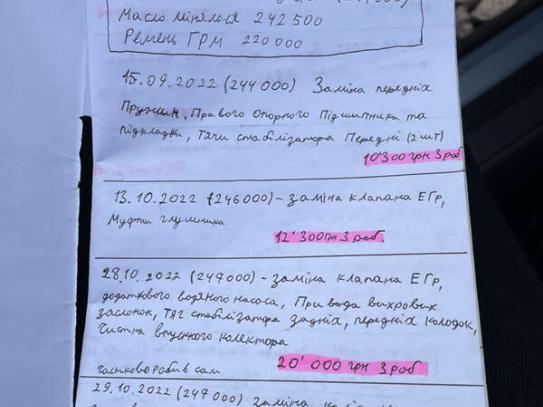 Масло мінялося 242 500
Ремень ГРМ 220 000
15.09.2022 (244 000) Заміна передніх
Пружин, Правого Опорного Підшипника та
підкладки, Тяги стабілізатора Передні (2 шт)
10'300 грн З роб
13.10.2022 (246000) - заміна клапана ЕГр,
Муфти глушника
12'300 грн З роб.
28.10.2022 (247000) - заміна клапана ЕГр,
додаткового водяного насоса, Привода вихрових
заслонок, Тяг стабілізатора задніх, передніх колодок,
Чистка впускного колектора
20'000 грн З роб
частково робив сам
29.10.2022 (247 000) заміна